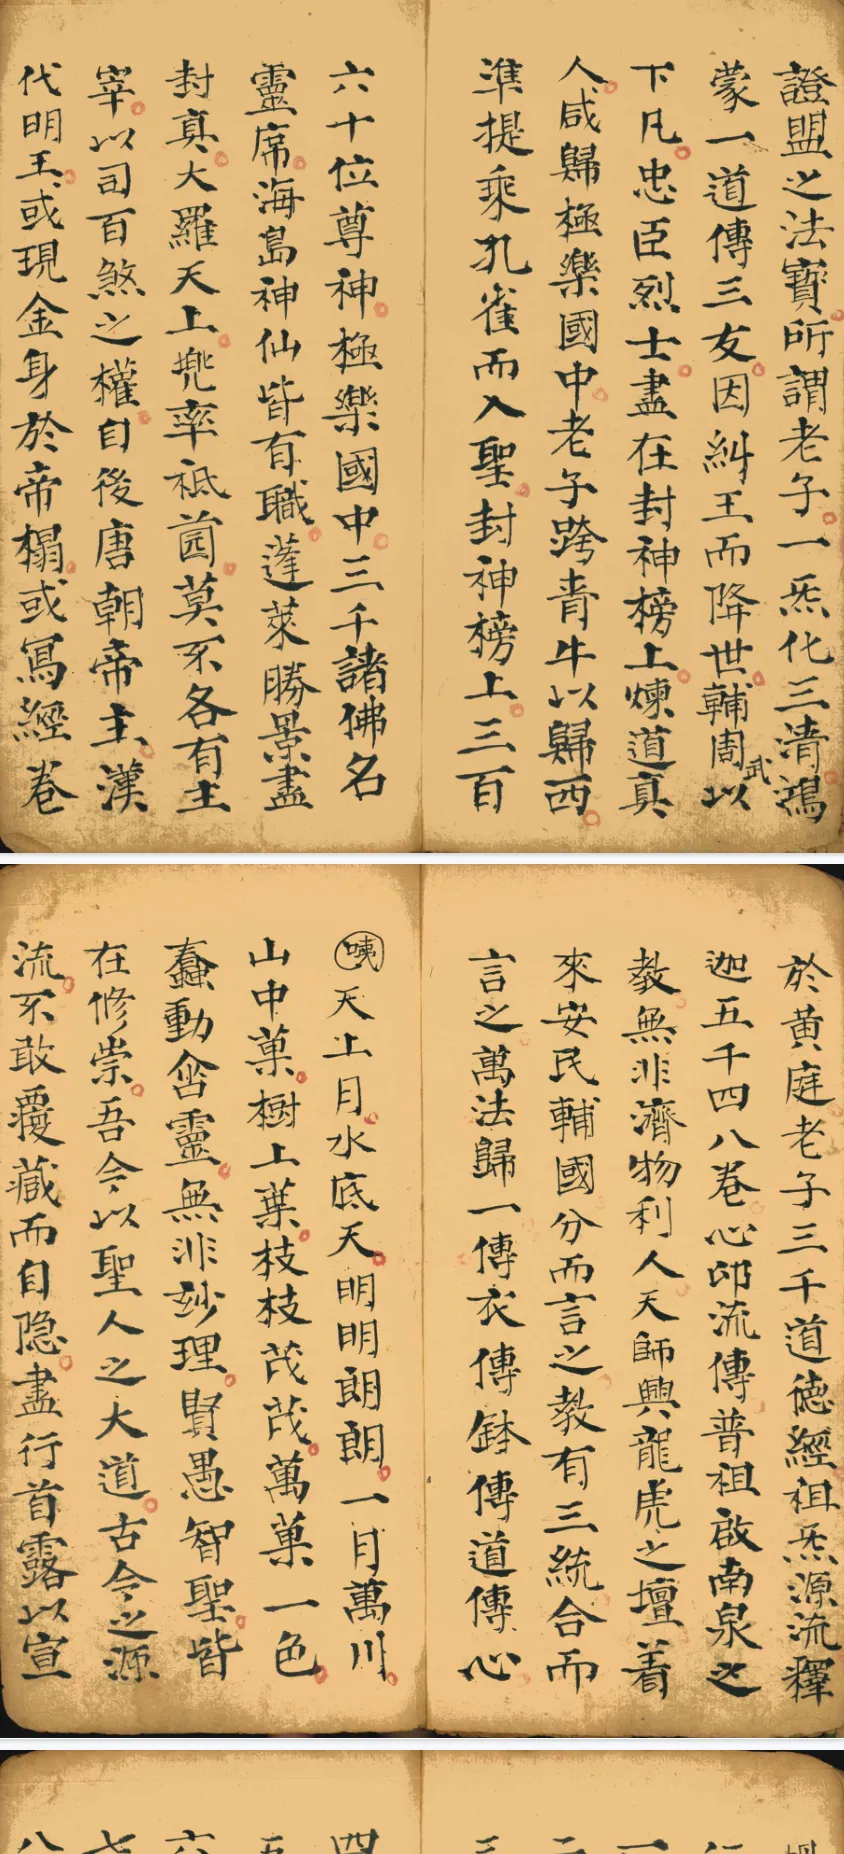 證盟之法寶所謂老子一炁化三清鴻
蒙一道傳三友因糾王而降世輔周武以
下凡忠臣烈士盡在封神榜上煉道真
人咸歸極樂國中老子跨青牛以歸西
準提乘孔雀而入聖封神榜上三百
六十位尊神極樂國中三千諸佛名
靈席海島神仙皆有職蓬萊勝景盡
封真大羅天上兜率祗園莫不各有主
宰以司百煞之權自後唐朝帝主漢
代明王或現金身於帝榻或寫經卷
於黄庭老子三千道德經祖炁源流釋
迦五千四八卷心印流傳普祖啟南泉之
教無非濟物利人天師興龍虎之壇着
來安民輔國分而言之教有三統合而
言之萬法歸一傳衣傳鉢傳道傳心
咦天上月水底天明明朗朗一月萬川
山中菓樹上葉枝枝茂茂萬菓一色
蠢動含靈無非玅理賢愚智聖皆
在修崇吾今以聖人之大道古今之源
流不敢覆藏而自隐盡行首露以宣
四
六
七
八